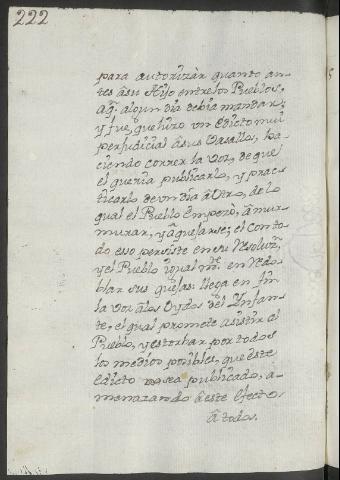 222
para autorizàr quanto an-
tes âsu Hijo entre los Pueblos,
aq.e algun dia debia mandar;
y fue, que hizo un Edicto mui
perjudicial âsus Vasallos, ha-
ciendo correr la voz, de que
el queria publicarlo, y prac-
ticarlo de un dia â otro, de lo
qual el Pueblo Empezò, â mur-
murar, y âquejarse; el con to-
do eso persiste en su Resoluz.n
y el Pueblo igual m.te en redo-
blar sus quejas: llega en fin
la voz âlos Oydos del Infan-
te, el qual promete asistir al
Pueblo, y estorbar por todos
los medios posibles, que este
Edicto no sea publicado, a-
menazando â este efecto
â todos.